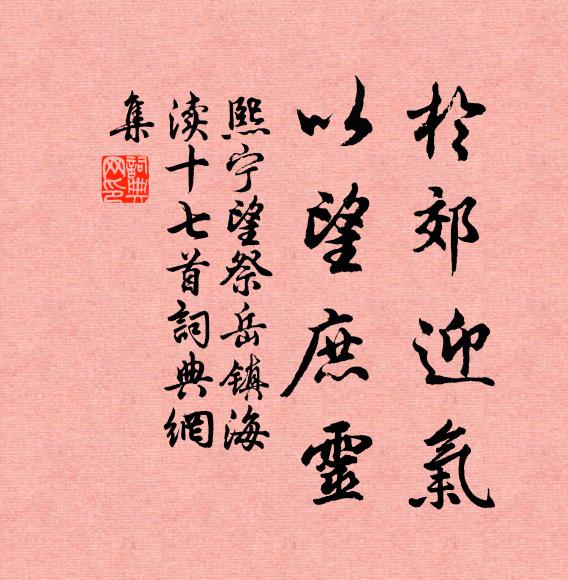 於郊迎氣
以望庶靈
熙宁望祭岳镇海
渎十七首詞典網
集
詞典网印